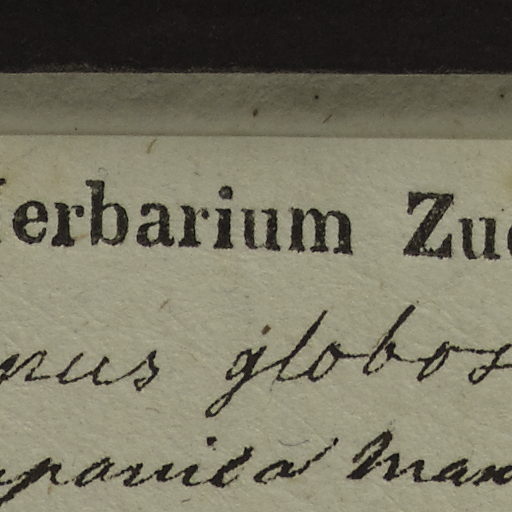 Herbarium Zuc
nus globos
panica Man